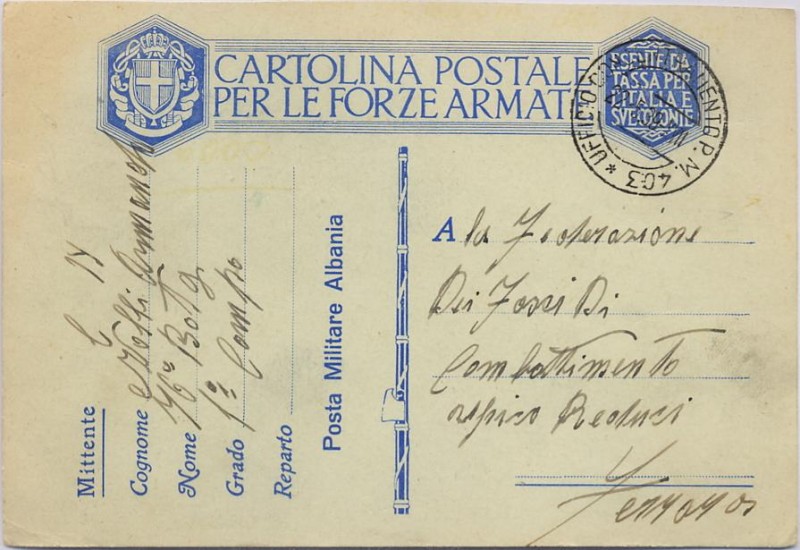 CARTOLINA POSTALE
PER LE FORZE ARMATE
ESENTE DA
TASSA PER
L'ITALIA E
SVE COLONIE
* UFFICIO P.M. 403 *
A la Federazione
Dei Fasci Di
Combattimento
Reduci
Posta Militare Albania
Mittente
Cognome Armando
Nome 76° Batt
Grado 1° Comp
Reparto